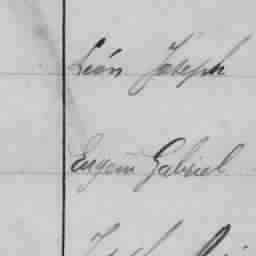 Léon Joseph
Eugène Gabriel